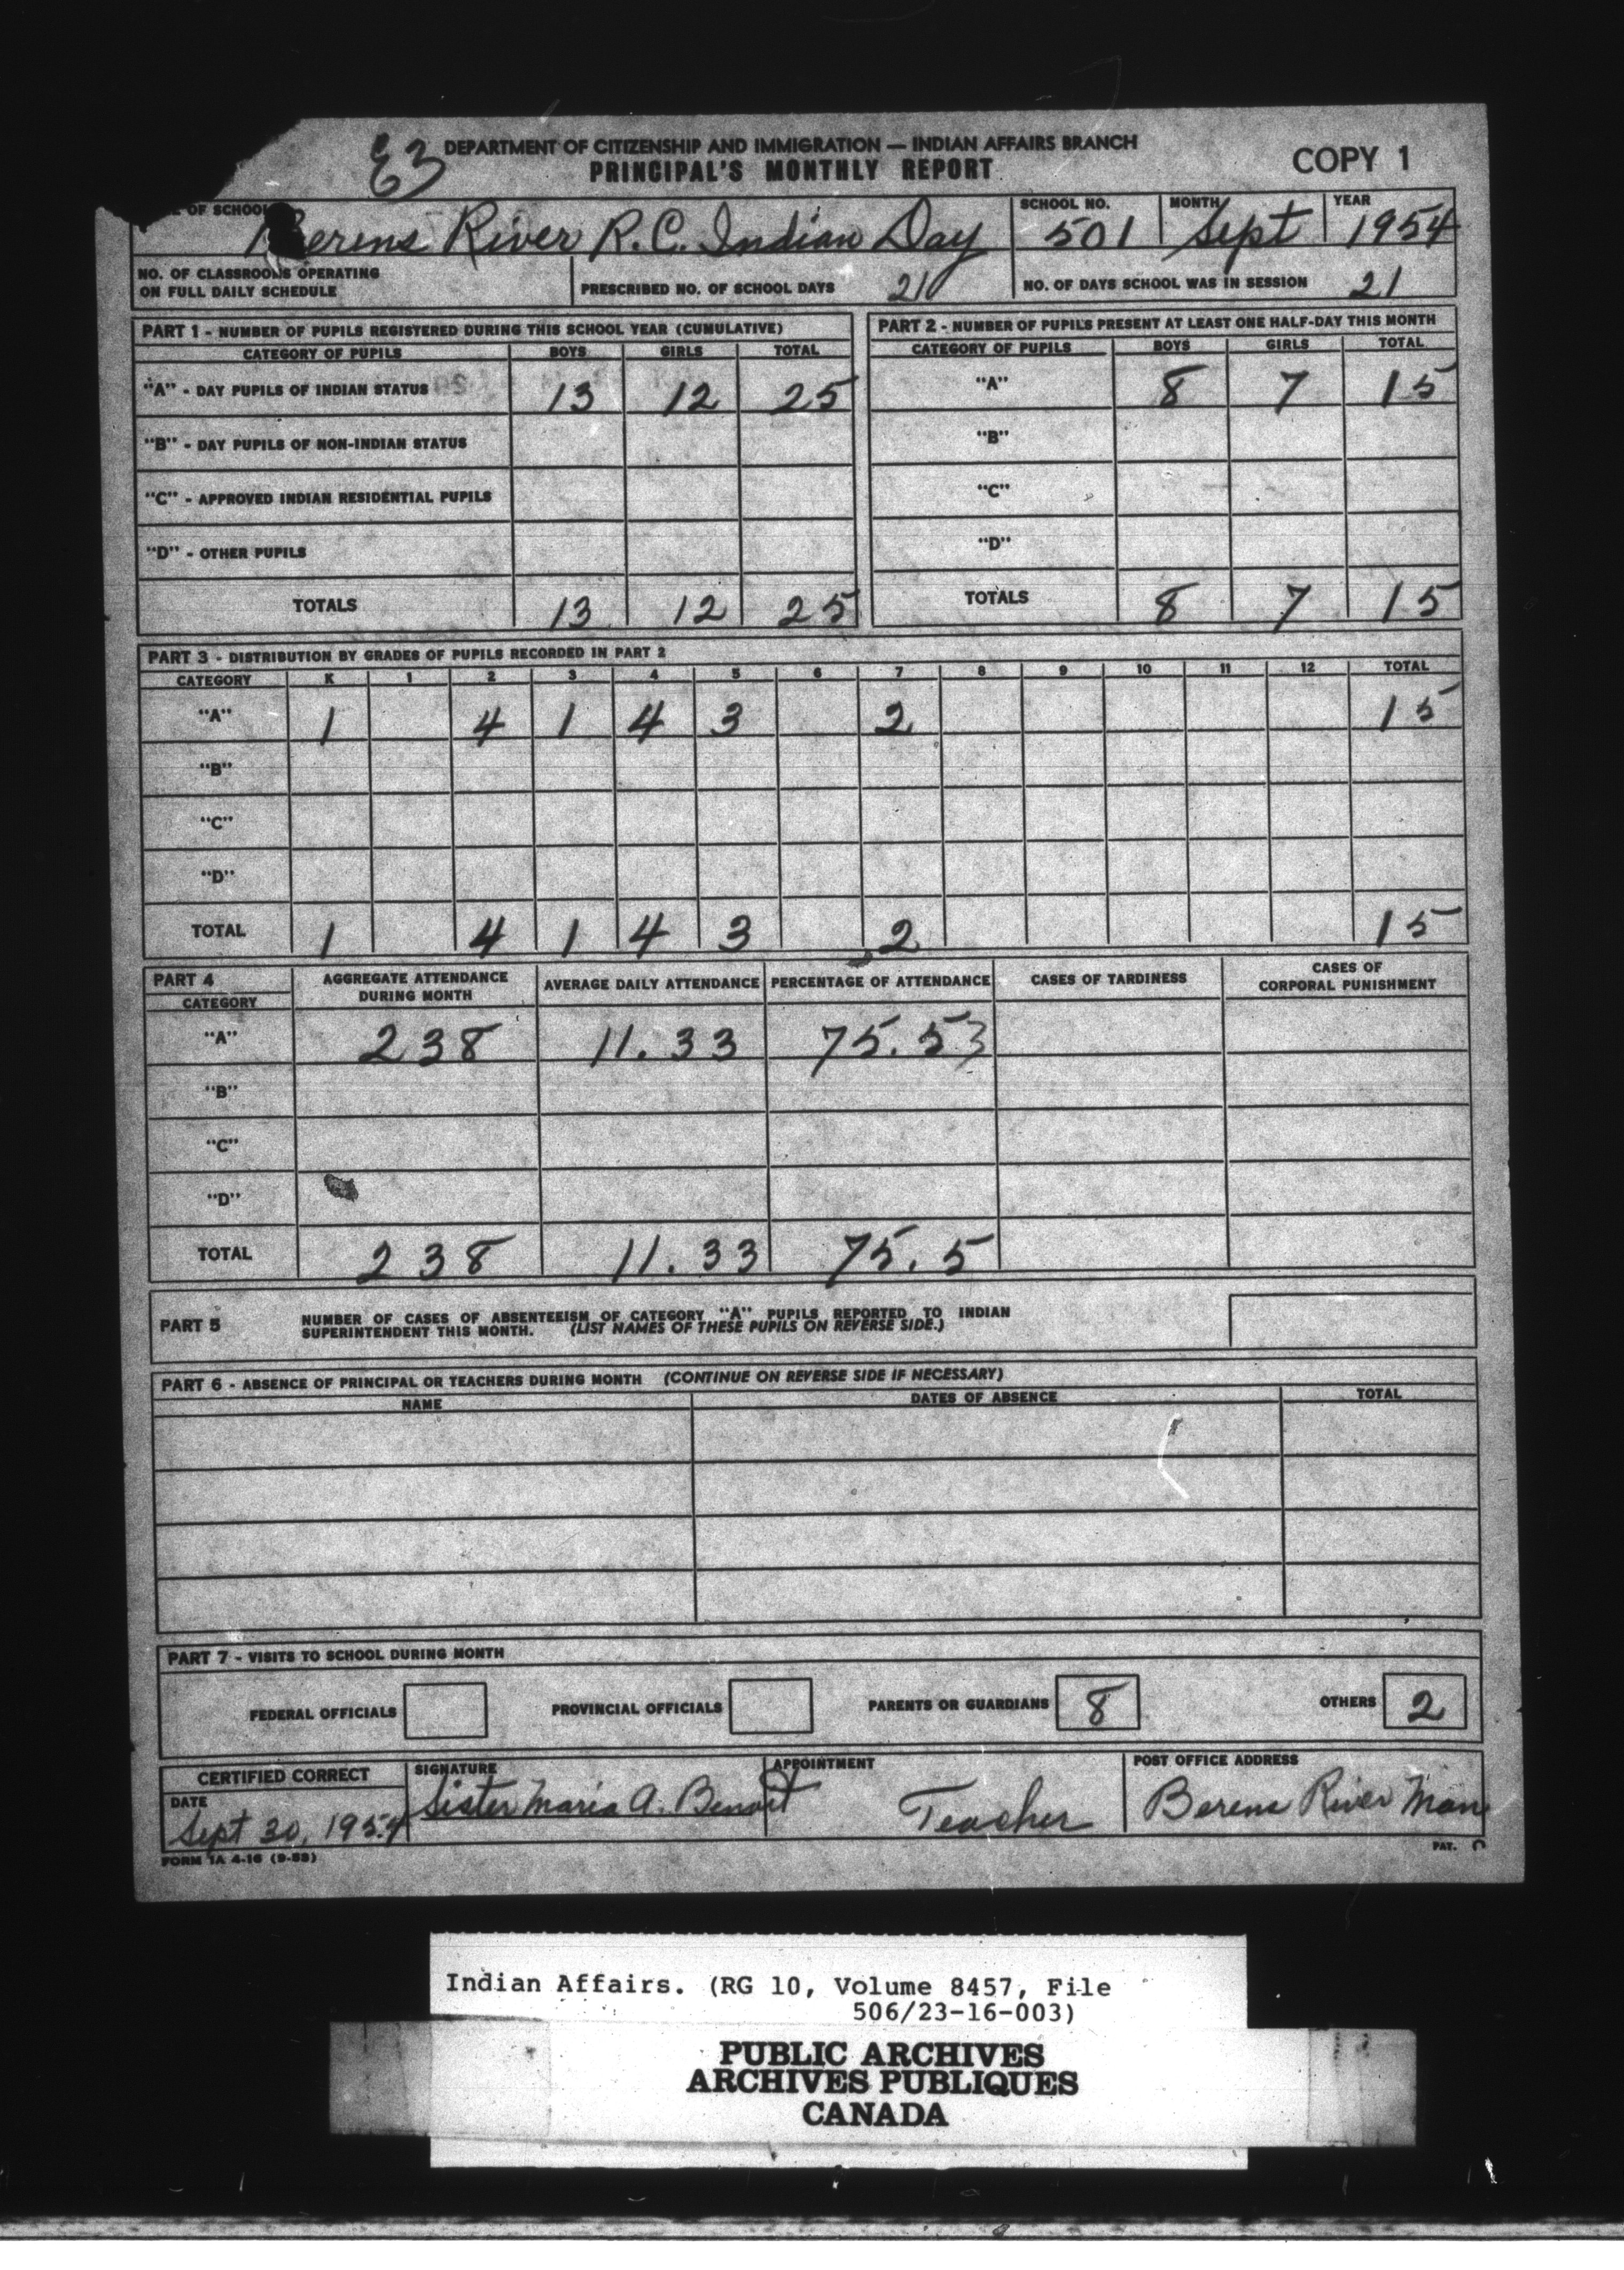 E3
DEPARTMENT OF CITIZENSHIP AND IMMIGRATION — INDIAN AFFAIRS BRANCH
PRINCIPAL'S MONTHLY REPORT
COPY 1
OF SCHOOL SCHOOL NO. MONTH YEAR
Berens River R.C. Indian Day 501 Sept 1954
NO. OF CLASSROOMS OPERATING
ON FULL DAILY SCHEDULE
PRESCRIBED NO. OF SCHOOL DAYS 21
NO. OF DAYS SCHOOL WAS IN SESSION 21
PART 1 - NUMBER OF PUPILS REGISTERED DURING THIS SCHOOL YEAR (CUMULATIVE)
CATEGORY OF PUPILS BOYS GIRLS TOTAL
"A" - DAY PUPILS OF INDIAN STATUS 13 12 25
"B" - DAY PUPILS OF NON-INDIAN STATUS
"C" - APPROVED INDIAN RESIDENTIAL PUPILS
"D" - OTHER PUPILS
TOTALS 13 12 25
PART 2 - NUMBER OF PUPILS PRESENT AT LEAST ONE HALF-DAY THIS MONTH
CATEGORY OF PUPILS BOYS GIRLS TOTAL
"A" 8 7 15
"B"
"C"
"D"
TOTALS 8 7 15
PART 3 - DISTRIBUTION BY GRADES OF PUPILS RECORDED IN PART 2
CATEGORY K 1 2 3 4 5 6 7 8 9 10 11 12 TOTAL
"A" 1 4 1 4 3 2 15
"B"
"C"
"D"
TOTAL 1 4 1 4 3 2 15
PART 4
CATEGORY
AGGREGATE ATTENDANCE
DURING MONTH
AVERAGE DAILY ATTENDANCE
PERCENTAGE OF ATTENDANCE
CASES OF TARDINESS
CASES OF
CORPORAL PUNISHMENT
"A" 238 11.33 75.53
"B"
"C"
"D"
TOTAL 238 11.33 75.5
PART 5
NUMBER OF CASES OF ABSENTEEISM OF CATEGORY "A" PUPILS REPORTED TO INDIAN
SUPERINTENDENT THIS MONTH. (LIST NAMES OF THESE PUPILS ON REVERSE SIDE.)
PART 6 - ABSENCE OF PRINCIPAL OR TEACHERS DURING MONTH (CONTINUE ON REVERSE SIDE IF NECESSARY)
NAME DATES OF ABSENCE TOTAL
PART 7 - VISITS TO SCHOOL DURING MONTH
FEDERAL OFFICIALS PROVINCIAL OFFICIALS PARENTS OR GUARDIANS 8 OTHERS 2
CERTIFIED CORRECT
DATE
Sept 30, 1954
SIGNATURE
Sister Maria A. Benoit
APPOINTMENT
Teacher
POST OFFICE ADDRESS
Berens River Man
FORM IA 4-16 (9-53)
PAT. C
Indian Affairs. (RG 10, Volume 8457, File
506/23-16-003)
PUBLIC ARCHIVES
ARCHIVES PUBLIQUES
CANADA